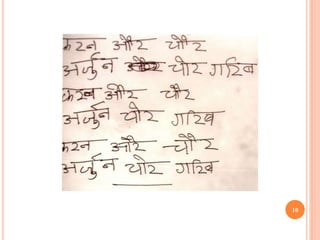 करन और चौर
अर्जुन चोर गरिब
करन और चौर
अर्जुन चोर गरिब
करन और चौर
अर्जुन चोर गरिब
10